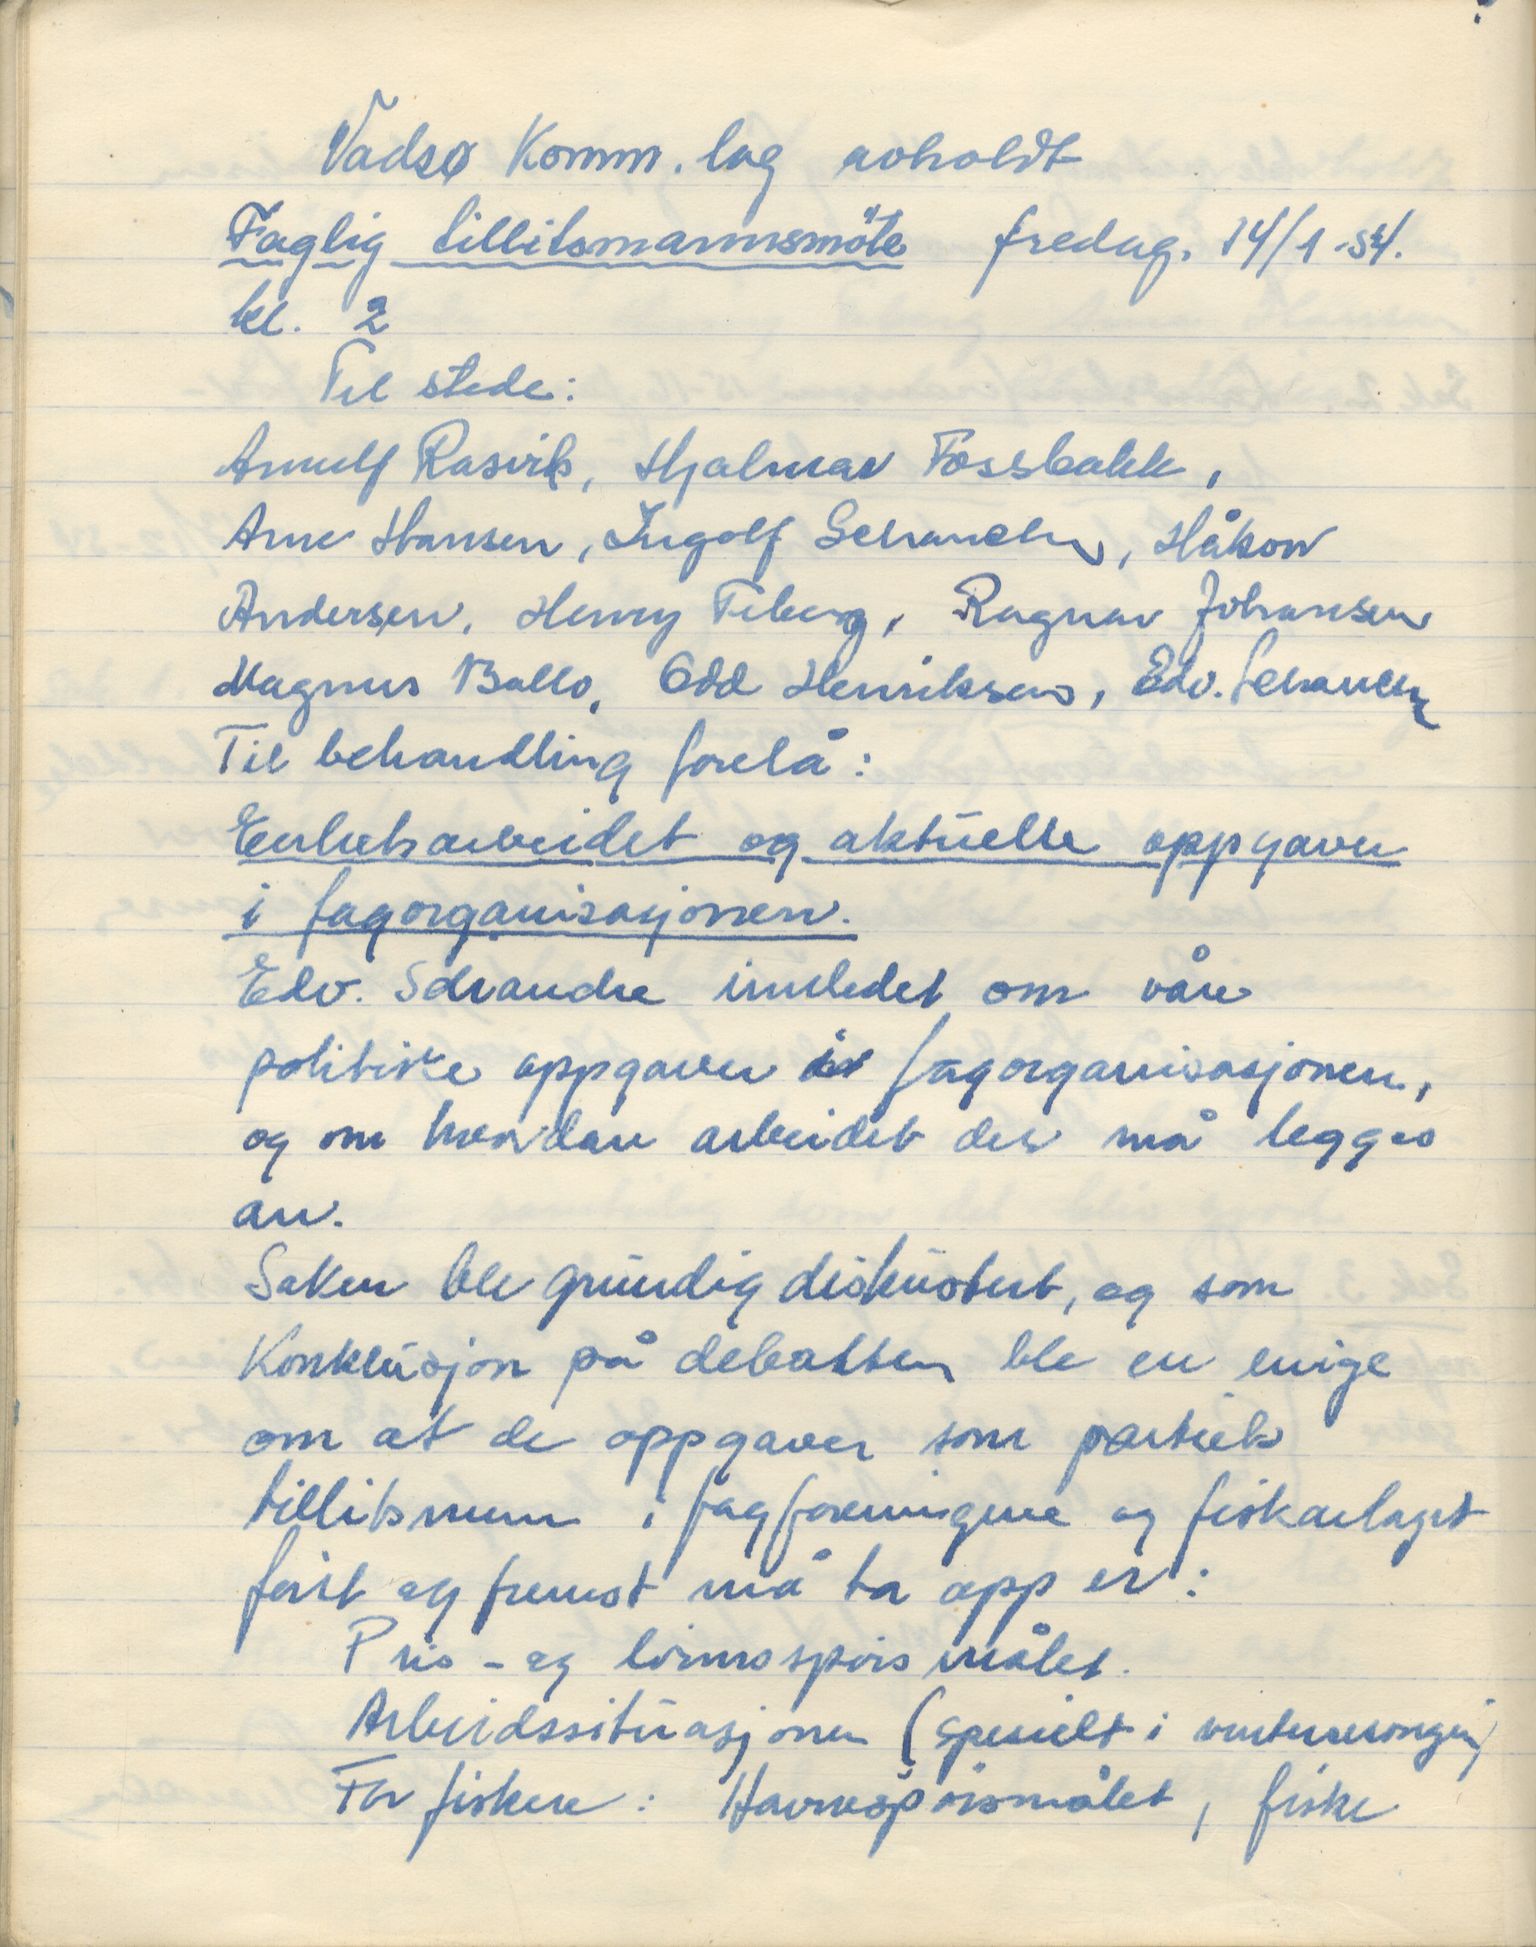 Vadsø Komm. lag avholdt
Faglig tillitsmannsmöte fredag. 14/1-54.
kl. 2
Til stede:
Arnulf Rasvik, Hjalmar Fossbakk,
Arne Hansen, Ingolf Schanche, Håkon
Andersen, Henry Feberg, Ragnar Johansen
Magnus Ballo, Odd Henriksen, Edv. Schanche
Til behandling forelå:
Enhetsarbeidet og aktuelle oppgaver
i fagorganisasjonen.
Edv. Schanche innledet om våre
politiske oppgaver i fagorganisasjonen,
og om hvordan arbeidet der må legges
an.
Saken ble grundig diskutert, og som
Konklusjon på debatten ble en enige
om at de oppgaver som partiets
tillitsmenn i fagforeningene og fiskarlaget
først og fremst må ta opp er:
Pris- og lönnsspörsmålet.
Arbeidssituasjonen (spesielt i vintersesongen)
For fiskere: Havnespörsmålet, fiske